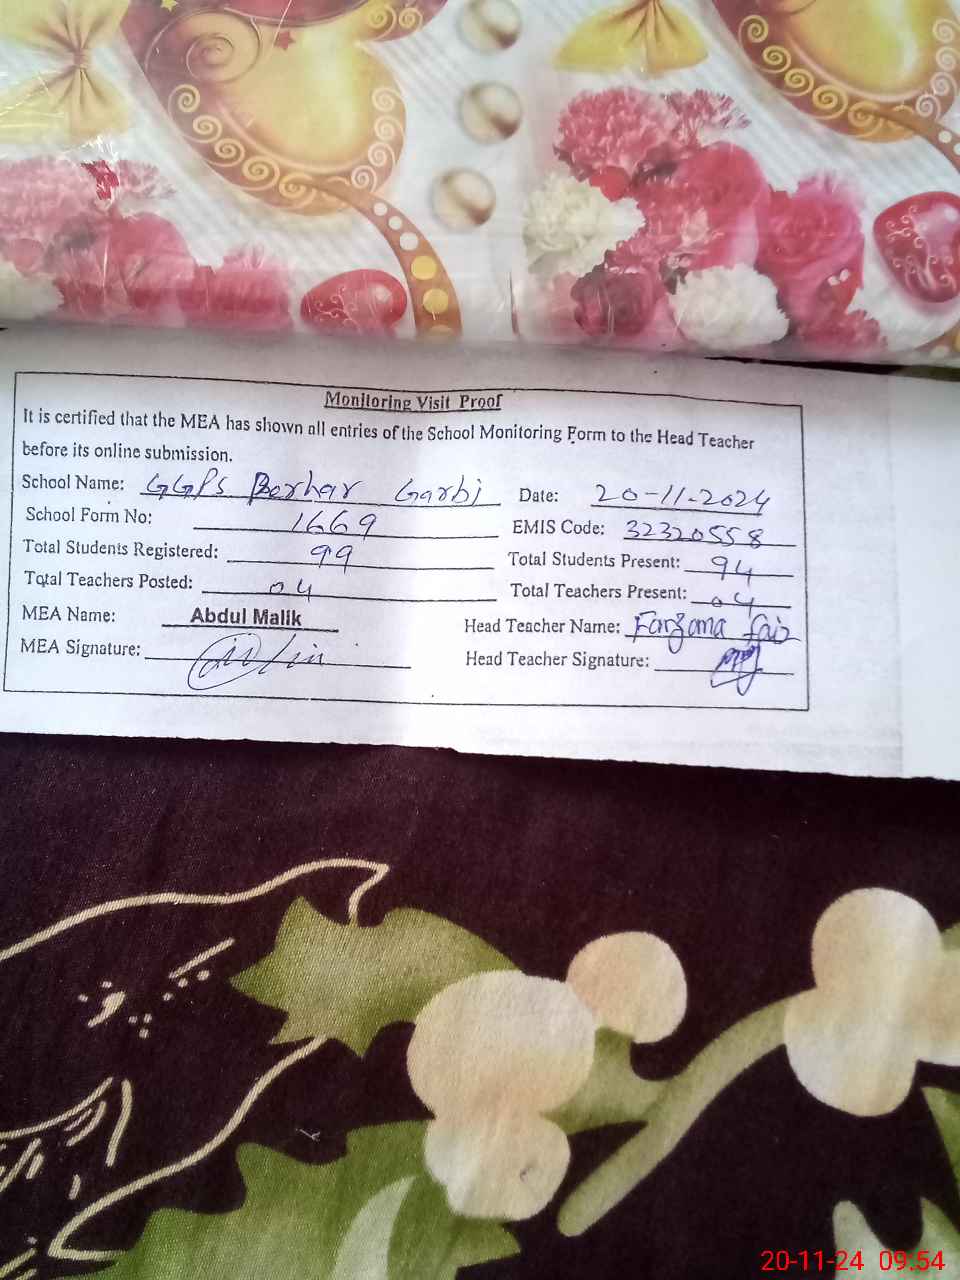 Monitoring Visit Proof
It is certified that the MEA has shown all entries of the School Monitoring Form to the Head Teacher
before its online submission.
School Name: GGPS Berhar Garbi Date: 20-11-2024
School Form No: 1669 EMIS Code: 32320558
Total Students Registered: 99 Total Students Present: 94
Total Teachers Posted: 04 Total Teachers Present: 04
MEA Name: Abdul Malik Head Teacher Name: Farzana Faiz
MEA Signature: Head Teacher Signature:
20-11-24 09:54